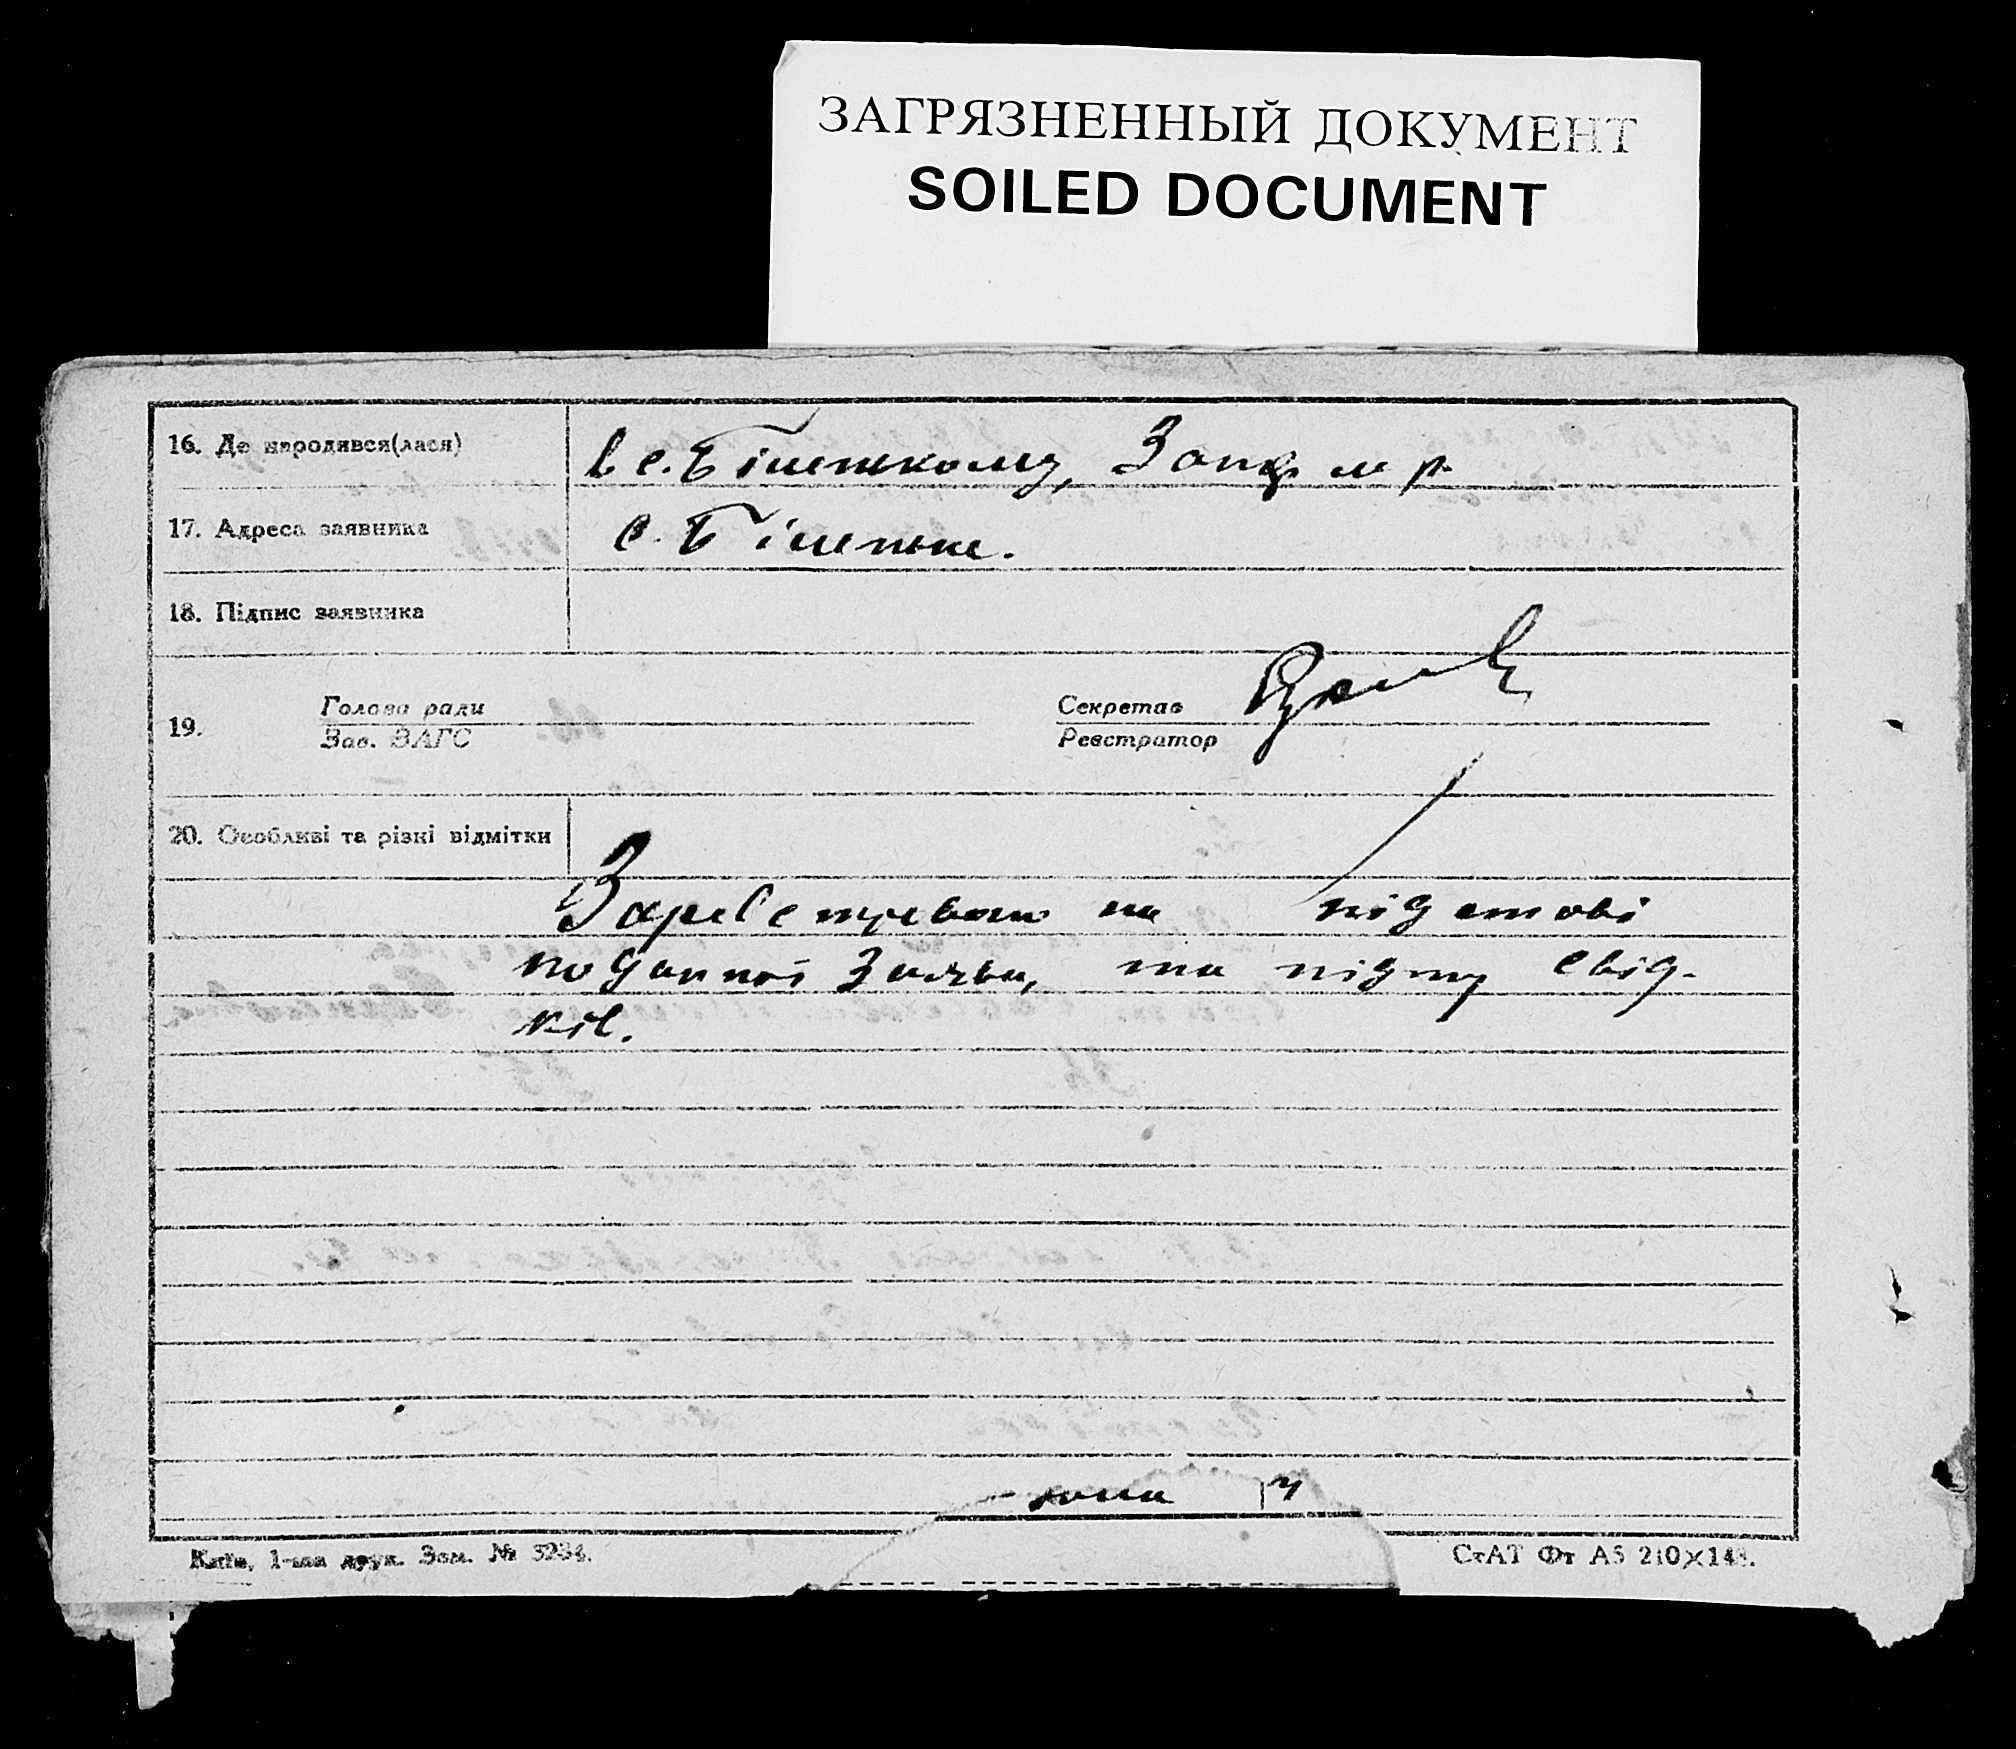 ЗАГРЯЗНЕННЫЙ ДОКУМЕНТ
SOILED DOCUMENT
16. Де народився(лася)
в с. Більшкому,
17. Адреса заявника
с.
18. Підпис заявника
19.
Голова ради
Зав. ЗАГС
Секретар
Реєстратор
20. Особливі та різні відмітки
Зареєстровано на підставі
поданної заяви, та підпису свід-
ків.
Київ, 1-ша друк. Зам. № 3234.
СтАТ Фт А5 210×148.